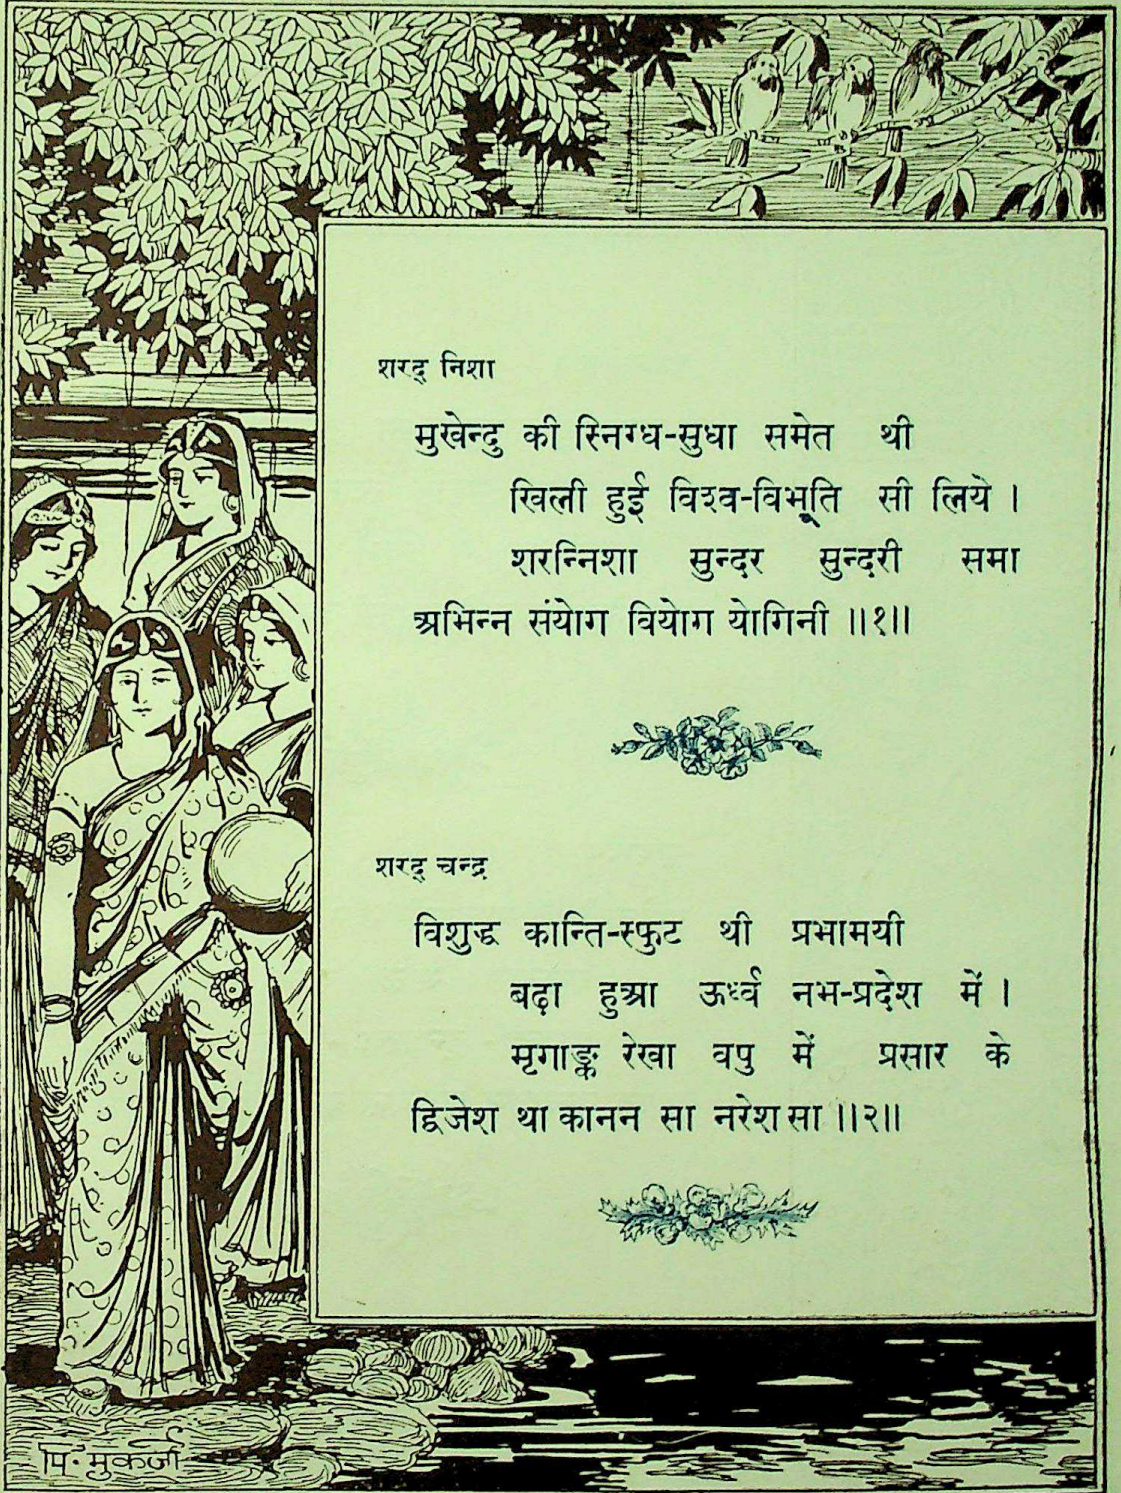 शरद् निशा
मुखेन्दु की स्निग्ध-सुधा समेत थी
खिली हुई विश्व-विभूति सी लिये ।
शरन्निशा सुन्दर सुन्दरी समा
अभिन्न संयोग वियोग योगिनी ॥१॥
शरद् चन्द्र
विशुद्ध कान्ति-स्फुट थी प्रभामयी
बढ़ा हुआ ऊर्ध्व नभ-प्रदेश में ।
मृगाङ्क रेखा वपु में प्रसार के
द्विजेश था कानन सा नरेश सा ॥२॥
पि. मुकर्जी